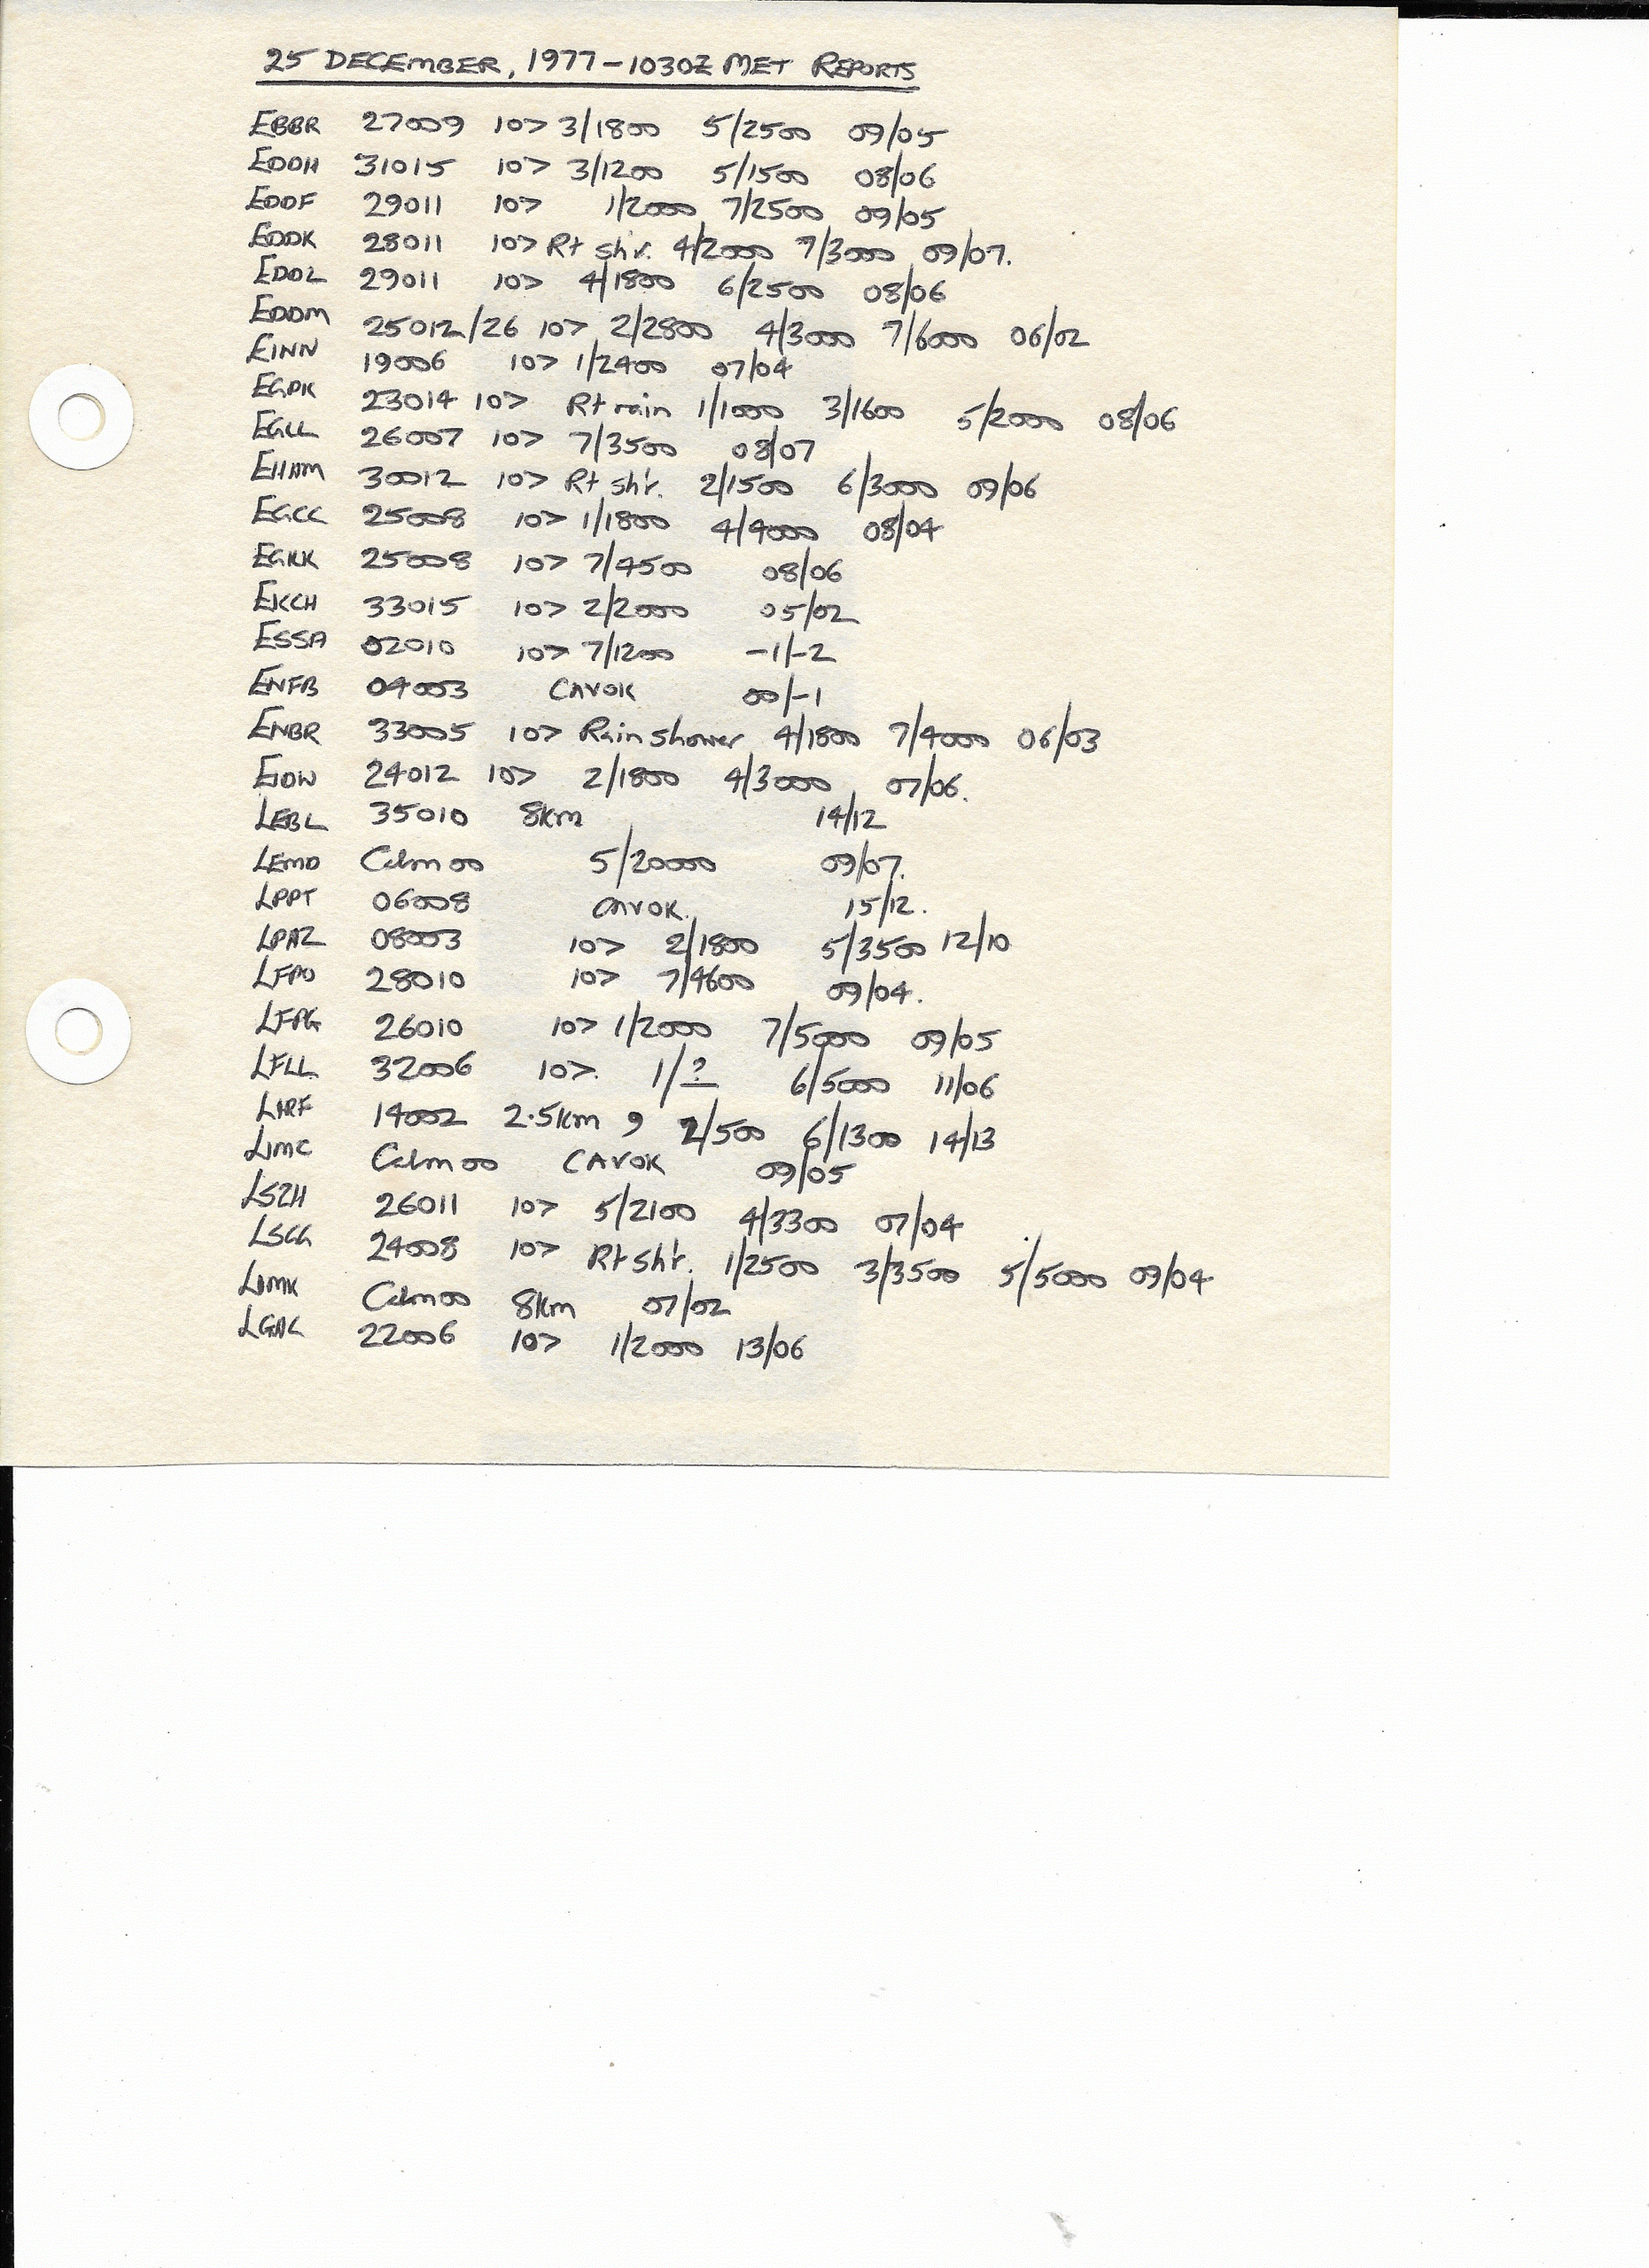 25 DECEMBER, 1977 – 1030Z MET REPORTS
EBBR 27009 10> 3/1800 5/2500 09/05
EDDH 31015 10> 3/1200 5/1500 08/06
EDDF 29011 10> 1/2000 7/2500 09/05
EDDK 28011 10> Rt sh'r. 4/2000 7/3000 09/07.
EDDL 29011 10> 4/1800 6/2500 08/06
EDDM 25012/26 10> 2/2800 4/3000 7/6000 06/02
EINN 19006 10> 1/2400 07/04
EGPK 23014 10> Rt rain 1/1000 3/1600 5/2000 08/06
EGLL 26007 10> 7/3500 08/07
EHAM 30012 10> Rt sh'r. 2/1500 6/3000 09/06
EGCC 25008 10> 1/1800 4/4000 08/04
EGKK 25008 10> 7/4500 08/06
EKCH 33015 10> 2/2000 05/02
ESSA 02010 10> 7/1200 -1/-2
ENFB 04003 CAVOK 00/-1
ENBR 33005 10> Rain shower 4/1800 7/4000 06/03
EIDW 24012 10> 2/1800 4/3000 07/06.
LEBL 35010 8km 14/12
LEMD Calm 00 5/20000 09/07.
LPPT 06008 CAVOK. 15/12.
LPAZ 08003 10> 2/1800 5/3500 12/10
LFPO 28010 10> 7/4600 09/04.
LFPG 26010 10> 1/2000 7/5000 09/05
LFLL 32006 10>. 1/? 6/5000 11/06
LIRF 14002 2.5km 9 2/500 6/1300 14/13
LIMC Calm 00 CAVOK 09/05
LSZH 26011 10> 5/2100 4/3300 07/04
LSGG 24008 10> Rt Sh'r. 1/2500 3/3500 5/5000 09/04
Calm 00 8km 07/02
22006 10> 1/2000 13/06